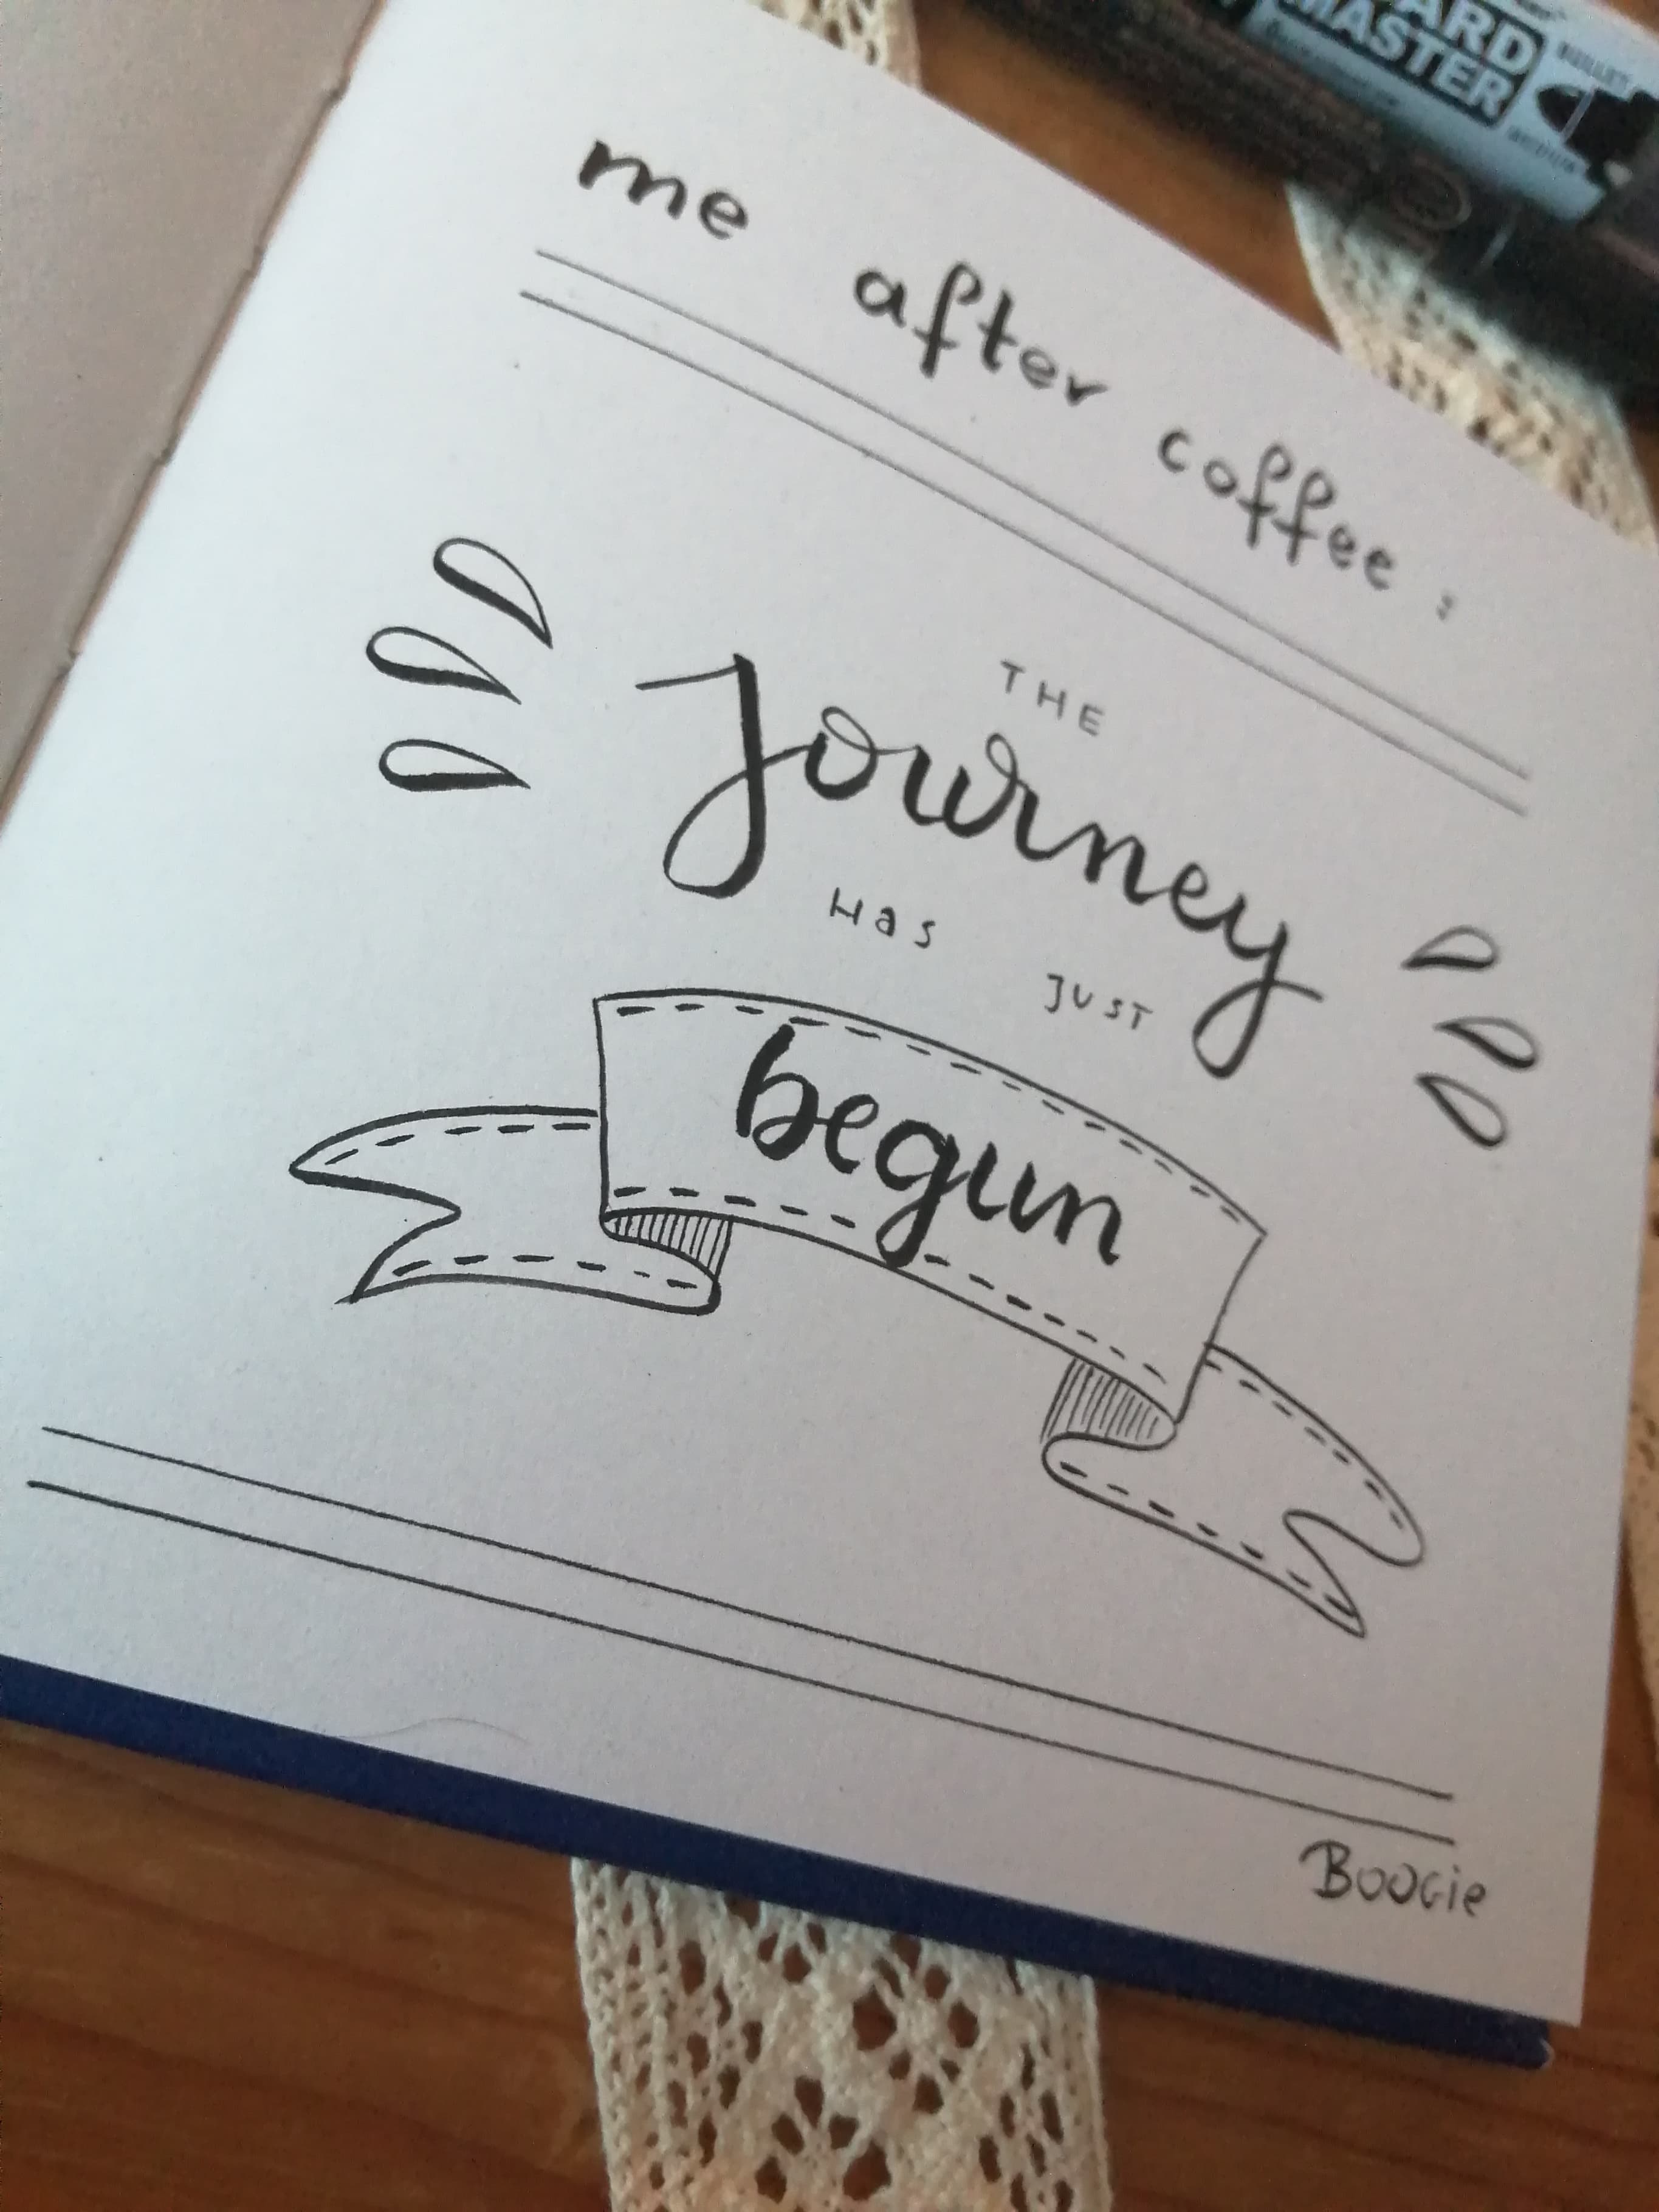 ARD
MASTER
BULLET
me after coffee :
THE
Journey
Has JUST
begun
BOOGie